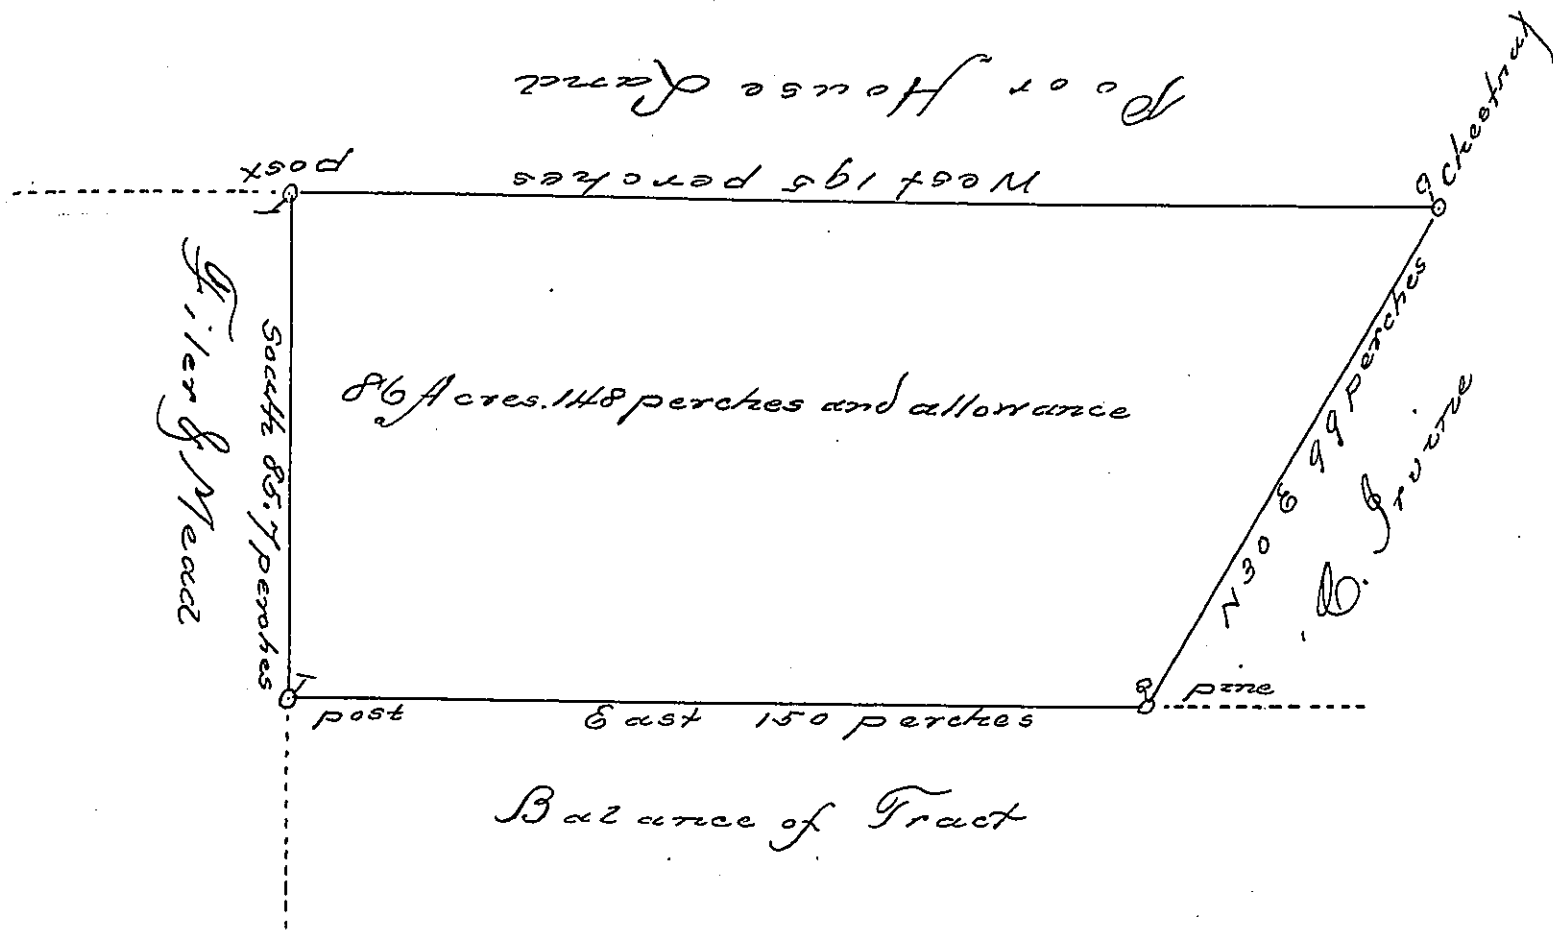 Poor House Land
West 195 perches
post
chestnut
Filer & Mead
South 85.7 perches
86 Acres. 148 perches and allowance
N 30 E 99 perches
Irvine
post
East 150 perches
pine
Balance of Tract